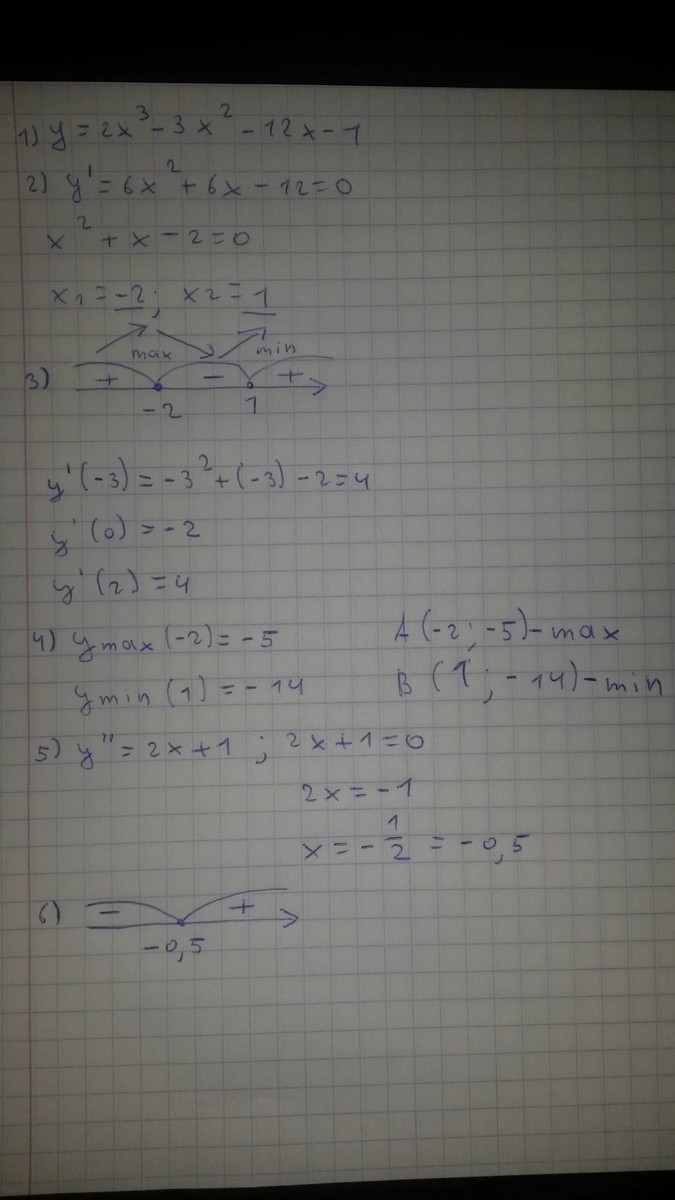 1) y = 2x³ - 3x² - 12x - 1
2) y' = 6x² + 6x - 12 = 0
x² + x - 2 = 0
x₁ = -2; x₂ = 1
max min
3) + - +
-2 1
y'(-3) = -3² + (-3) - 2 = 4
y'(0) = -2
y'(2) = 4
4) y max (-2) = -5 A (-2; -5) - max
y min (1) = -14 B (1; -14) - min
5) y'' = 2x + 1 ; 2x + 1 = 0
2x = -1
x = - 1/2 = -0,5
6) - +
-0,5